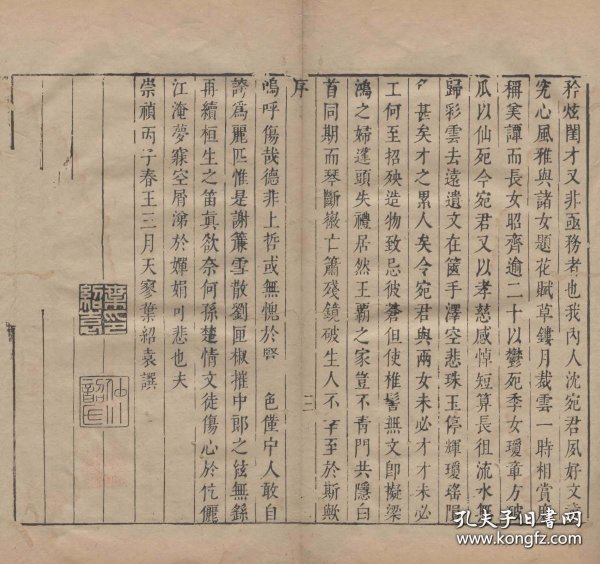 矜炫閨才又非亟務者也我內人沈宛君夙好文
究心風雅與諸女題花賦草鏤月裁雲一時相賞
稱美譚而長女昭齊逾二十以鬱死季女瓊章方破
瓜以仙死今宛君又以孝慈感悼短算長徂流水
歸彩雲去遠遺文在篋手澤空悲珠玉停輝瓊瑤隕
甚矣才之累人矣令宛君與兩女未必才才未必
工何至招殃造物致忌彼蒼但使椎髻無文即擬梁
鴻之婦蓬頭失禮居然王霸之家豈不青門共隱白
首同期而琴斷嶽亡簫殘鏡破生人不至於斯歟
序
二
嗚呼傷哉德非上哲或無愧於賢色僅中人敢自
誇為麗匹惟是謝簾雪散劉匣椒摧中郎之絃無繇
再續桓生之笛真欲奈何孫楚情文徒傷心於伉儷
江淹夢寐空屑涕於嬋娟可悲也夫
崇禎丙子春王三月天寥葉紹袁譔
葉印紹袁
仲韶氏
孔夫子旧书网
www.kongfz.com